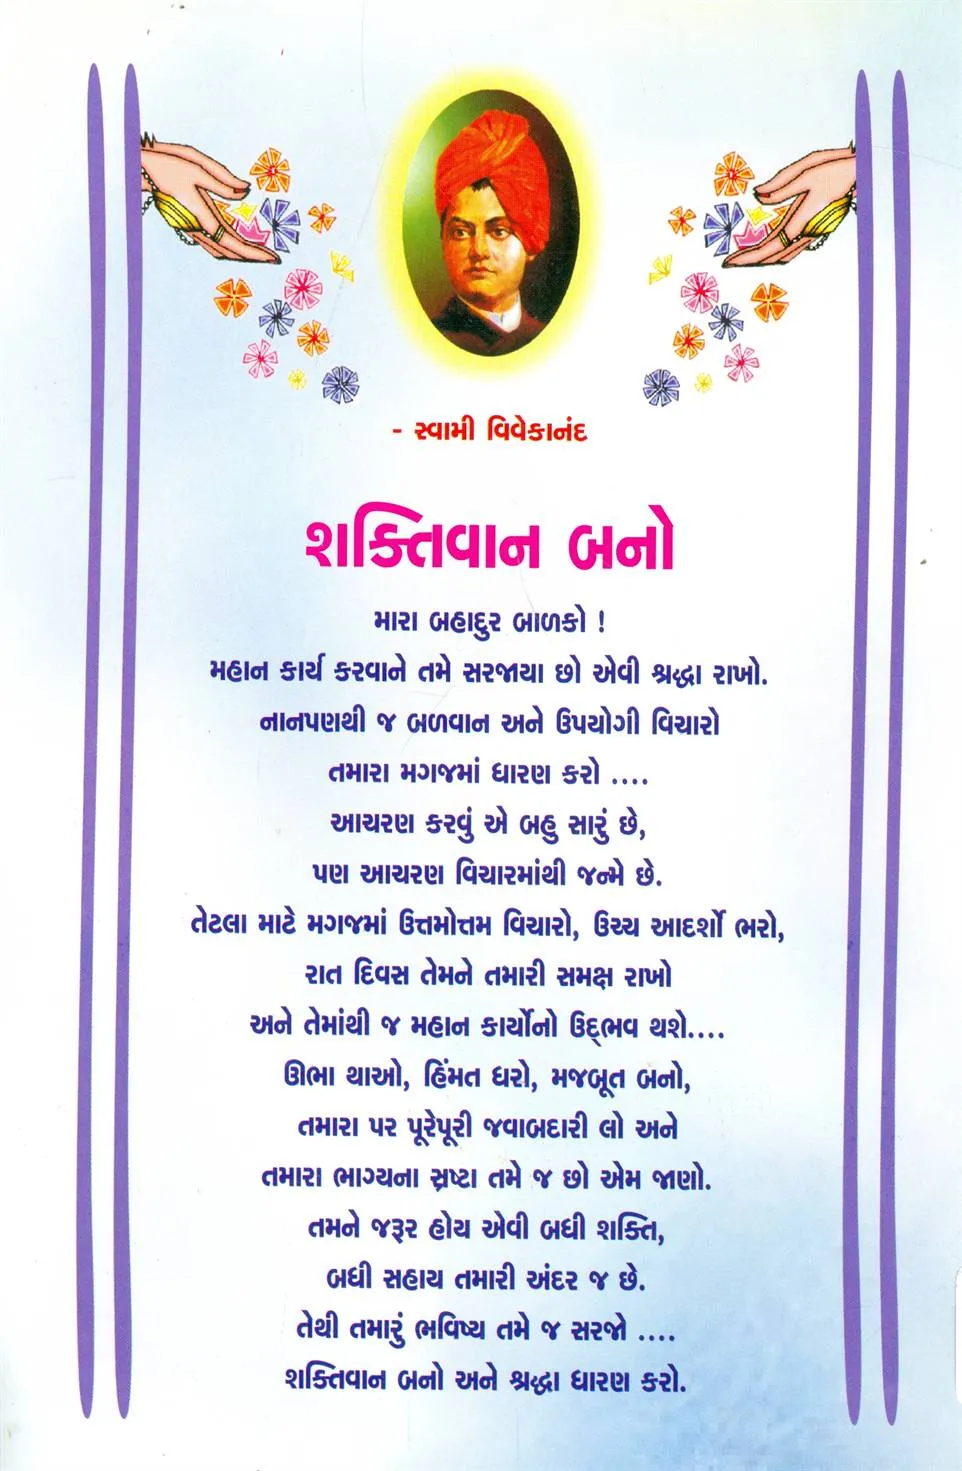 - સ્વામી વિવેકાનંદ
શક્તિવાન બનો
મારા બહાદુર બાળકો !
મહાન કાર્ય કરવાને તમે સરજાયા છો એવી શ્રદ્ધા રાખો.
નાનપણથી જ બળવાન અને ઉપયોગી વિચારો
તમારા મગજમાં ધારણ કરો ....
આચરણ કરવું એ બહુ સારું છે,
પણ આચરણ વિચારમાંથી જન્મે છે.
તેટલા માટે મગજમાં ઉત્તમોત્તમ વિચારો, ઉચ્ચ આદર્શો ભરો,
રાત દિવસ તેમને તમારી સમક્ષ રાખો
અને તેમાંથી જ મહાન કાર્યોનો ઉદ્‌ભવ થશે....
ઊભા થાઓ, હિંમત ધરો, મજબૂત બનો,
તમારા પર પૂરેપૂરી જવાબદારી લો અને
તમારા ભાગ્યના સ્રષ્ટા તમે જ છો એમ જાણો.
તમને જરૂર હોય એવી બધી શક્તિ,
બધી સહાય તમારી અંદર જ છે.
તેથી તમારું ભવિષ્ય તમે જ સરજો ....
શક્તિવાન બનો અને શ્રદ્ધા ધારણ કરો.